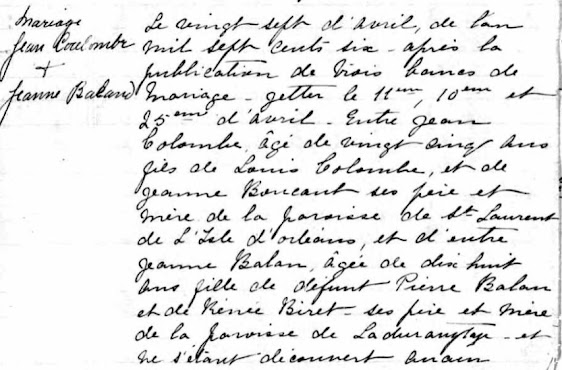 Mariage
Jean Coulombe
+
Jeanne Baland
Le vingt sept d'avril, de l'an
mil sept cents six - après la
publication de trois bancs de
Mariage - jetter le 11eme, 10eme et
25eme d'avril - Entre Jean
Colombe, âgé de vingt cinq ans
fils de Louis Colombe, et de
Jeanne Boucaut ses père et
mère de la paroisse de St Laurent
de L'Isle d'orléans, et d'entre
Jeanne Balan, âgée de dix huit
ans fille de défunt Pierre Balan
et de Renée Biret - ses père et mère
de la paroisse de - et
ne s'étant découvert aucun